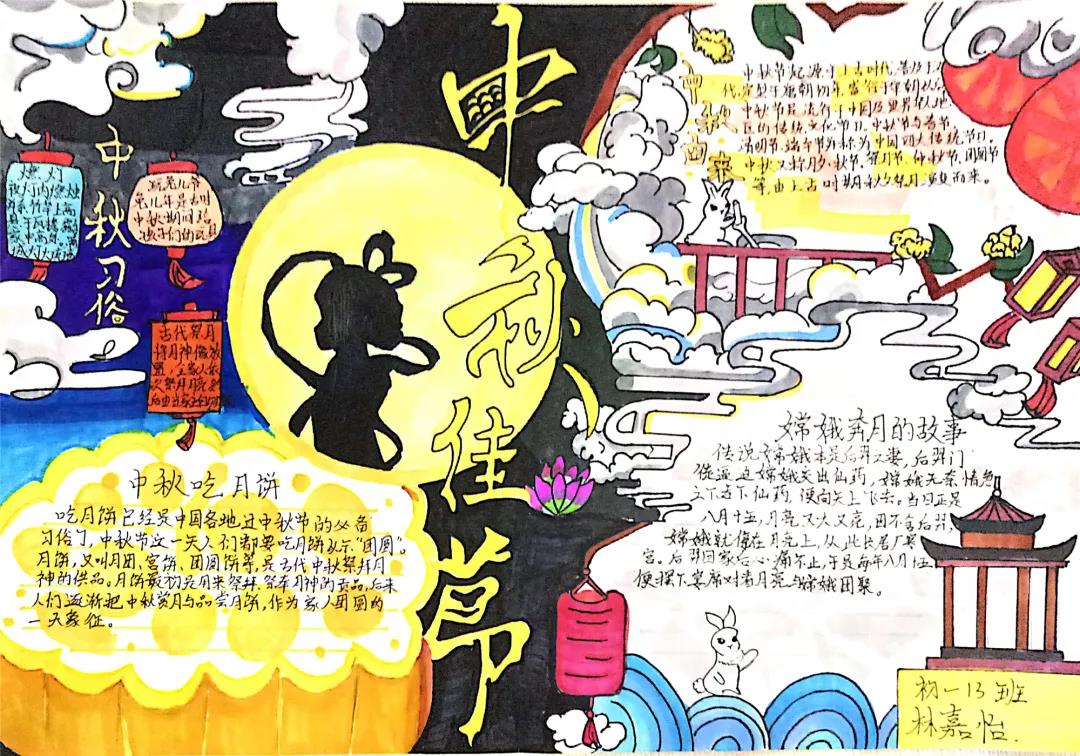 中秋佳节
中秋习俗
燃灯
玩兔儿爷
兔儿爷是古时
中秋期间孩
孩子们的玩具
古代祭月
将月神像放
置,主家人依
次祭拜月亮,然
中秋吃月饼
吃月饼已经是中国各地过中秋节的必备
习俗了,中秋节这一天人们都要吃月饼以示“团圆”。
月饼,又叫月团、宫饼、团圆饼等,是古代中秋祭拜月
神的供品。月饼最初是用来祭拜祭奉月神的贡品,后来
人们逐渐把中秋赏月与品尝月饼,作为家人团圆的
一大象征。
中秋由来
中秋节起源于上古时代,普及于汉
代,定型于唐朝初年,盛行于宋朝以
中秋节是流行于中国及世界各地
区的传统文化节日。中秋节与春节、
清明节、端午节并称为中国四大传统节日。
中秋又称月夕、秋节、祭月节、仲秋节、团圆节
等,由上古时期秋夕祭月演变而来。
嫦娥奔月的故事
传说嫦娥本是后羿之妻,后羿门
徒逼迫嫦娥交出仙药,嫦娥无奈情急
之下吞下仙药,便向天上飞去。当日正是
八月十五,月亮又大又亮,因不舍后羿
嫦娥就停在月亮上,从此长居广寒
宫。后羿回家后心痛不止,于是每年八月十五
便摆下宴席对着月亮与嫦娥团聚。
初一13班
林嘉怡.